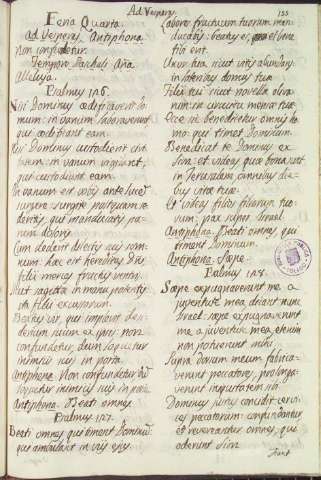 Ad Vesperas.
133
Feria Quarta.
Ad Vesperas Antiphona
Non confundetur.
Tempore Paschali Aña
Alleluya.
Psalmus 126.
Nisi Dominus ædificaverit do-
mum: in vanum laboraverunt
qui ædificant eam.
Nisi Dominus custodierit civi-
tatem: in vanum vigilant,
qui custodiunt eam.
In vanum est vobis ante lucem
surgere: surgite postquam se-
deritis, qui manducatis pa-
nem doloris.
Cum dederit dilectis suis som-
num: hæc est hereditas Dñi
filii merces fructus ventris.
Sicut sagittæ in manu potentis
ita filii excussorum.
Beatus vir, qui implevit desi-
derium suum ex ipsis: non
confundetur, dum loquetur
inimicis suis in porta.
Antiphona. Non confundetur dũ
loquetur inimicis suis in porta
Antiphona. Beati omnes
Psalmus 127.
Beati omnes, qui timent Dominũ:
qui ambulant in viis eius.
Labores fructuum tuarum man-
ducabis: beatus es, et bene
tibi erit.
Uxor tua sicut vitis abundans
in lateribus domus tuæ.
Filii tui sicut novellæ oliva-
rum in circuitu mensæ tuæ.
Ecce sic benedicetur omnis ho-
mo: qui timet Dominum.
Benedicat te Dominus ex
Sion: et videas quæ bona sunt
in Jerusalem omnibus die-
bus vitæ tuæ.
Et videas filios filiorum tuo-
rum: pax super Israel
Antiphona. Beati omnes, qui
timent Dominum.
Antiphona. Sæpe
Psalmus 128.
Sæpe expugnaverunt me a
juventute mea, dicat nunc
Israel: sæpe expugnaverunt
me a juventute mea, etenim
non potuerunt mihi.
Supra dorsum meum fabrica-
verunt peccatores, prolonga-
verunt iniquitatem
Dominus justus concidit cervi-
ces peccatorum: confundantur
et revereantur omnes, qui
oderunt Sion
fiant